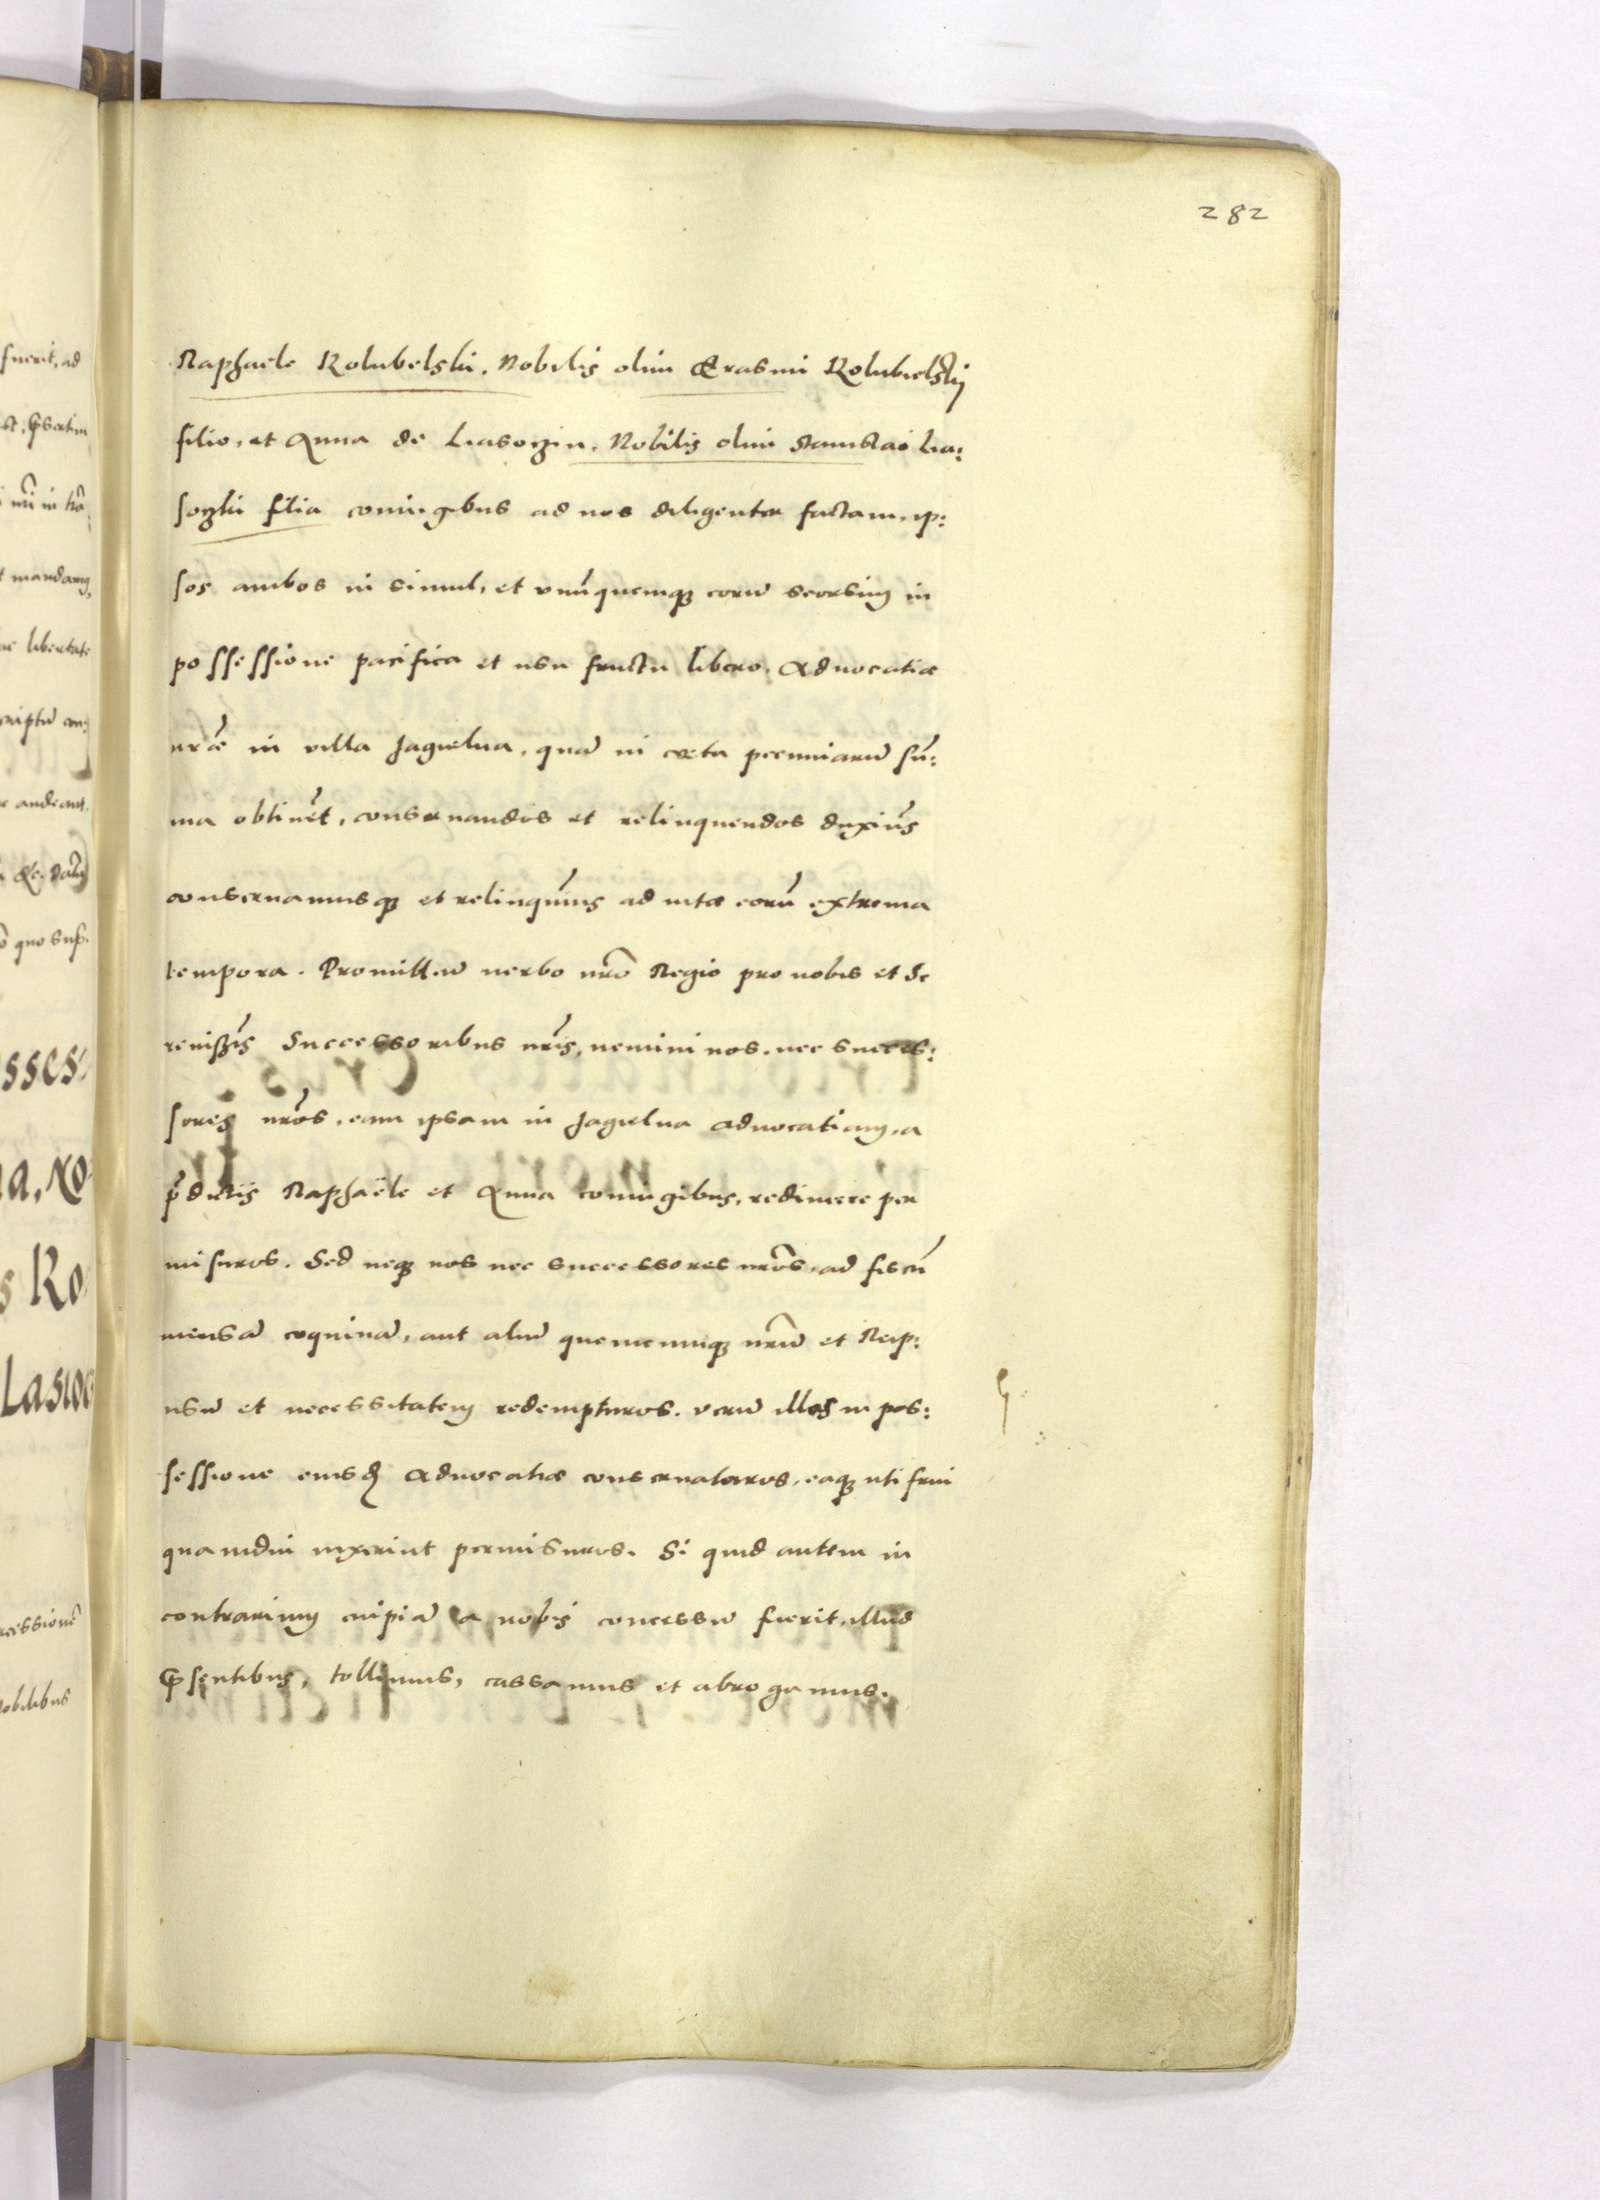 282
Raphaele Rolubelski, Nobilis olim Erasmi Rolubielskij
filio, et Anna de Liasozin, Nobilis olim Stanislai Lia:
sozki filia coniugibus ad nos diligenter factam, ip:
sos ambos in simul, et vnũquemq̃ eorũ seorsim in
possessione pacifica et usu fructu libero, Aduocatiae
nrãe in villa Jagielna, quã in certa pecuniarũ sũ:
ma obtinẽt, conseruandos et relinquendos duxim̃s
conseruamusq̃ et relinquim̃s ad vitae eorũ extrema
tempora. Promittim̃ verbo nrõ Regio pro nobis et Se
renissĩs Successoribus nrĩs, nemini nos, nec succes:
sores nrõs, eam ipsam in Jagielna aduocatiam, a
p̃dictis Raphaële et Anna coniugibus, redimere per
misuros. Sed neq̃ nos nec successores nrõs, ad fiscũ
mensã coquinã, aut aliũ quemcumq̃ nrũm et Reip:
usũ et necessitatem redempturos. verũ illos in pos:
sessione eiusd̃ Aduocatiae conseruaturos, eaq̃ uti frui
quamdiu vixerint permisuros. Si quid autem in
contrarium cuipiã a nobis concessũ fuerit, illud
p̃sentibus, tollimus, cassamus et abrogamus.
fuerit, ad
mandam̃
libertate
audeant.
quo sup.
sses:
a, No:
s Ro:
Lasioc
cessionẽ
nobilibus